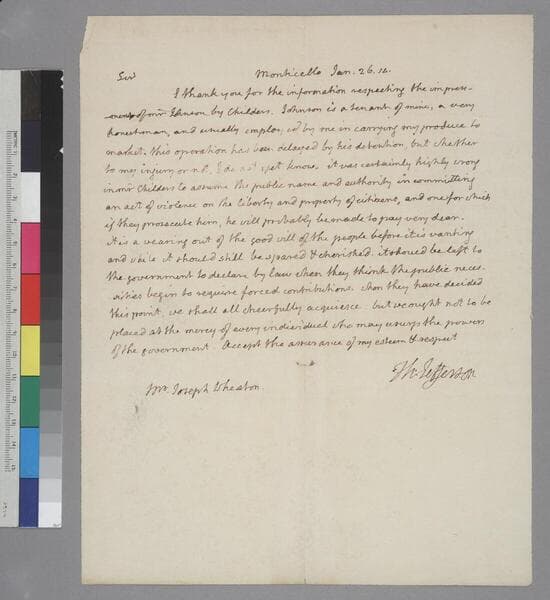 Sir Monticello Jan. 26. 14.
I thank you for the information respecting the impress-
of mr Johnson by Childers. Johnson is a tenant of mine, a very
honest man, and usually employ'd by me in carrying my produce to
market. this operation has been delayed by his detention, but whether
to my injury or not, I do not yet know. it was certainly highly wrong
in mr Childers to assume the public name and authority in committing
an act of violence on the liberty and property of citizens, and one for which
if they prosecute him, he will probably be made to pay very dear.
it is a wearing out of the good will of the people before it is wanting
and while it should still be spared & cherished. it should be left to
the government to declare by law when they think the public neces-
sities begin to require forced contributions. when they have decided
this point, we shall all cheerfully acquiesce. but we ought not to be
placed at the mercy of every individual who may usurp the powers
of the government. Accept the assurance of my esteem & respect
Th: Jefferson
Mr. Joseph Wheaton.